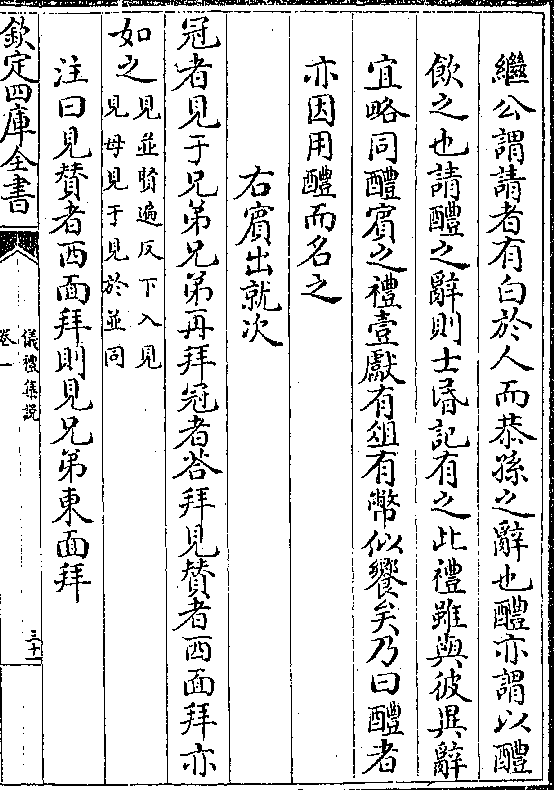 繼公謂請者有白於人而恭孫之辭也醴亦謂以醴
飲之也請醴之辭則士昬記有之此禮雖與彼異辭
宜略同醴賔之禮壹獻有俎有幣似饗矣乃曰醴者
亦因用醴而名之
右賔出就次
冠者見于兄弟兄弟再拜冠者荅拜見賛者西面拜亦
如之見並賢遍反下入見
見母見于見於並同
注曰見賛者西面拜則見兄弟東面拜
欽定四庫全書
儀禮集説
卷一
三十一